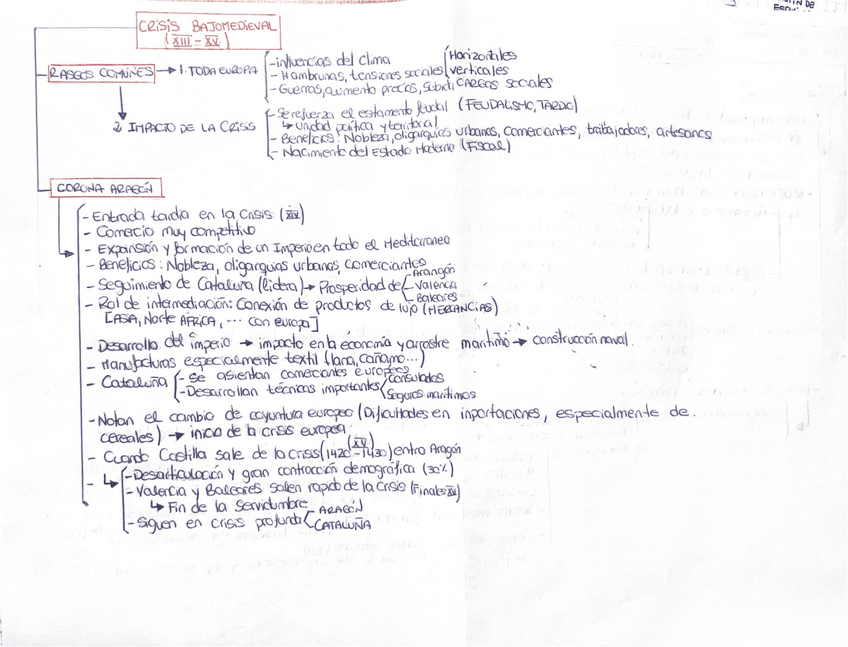 CRISIS BAJOMEDIEVAL
(XIII - XV)
RASGOS COMUNES → 1. TODA EUROPA
- influencias del clima
- Hambrunas, tensiones sociales
Horizontales
verticales
- Guerras, aumento precios, subida CARGOS sociales
2. IMPACTO DE LA CRISIS
- Se refuerza el estamento feudal (FEUDALISMO, TARDO)
↳ unidad política y territorial
- Beneficios: Nobleza, oligarquias urbanas, comerciantes, trabajadores, artesanos
- Nacimiento del Estado Moderno (Fiscal)
CORONA ARAGÓN
- Entrada tardia en la Crisis (XIV)
- Comercio muy competitivo
- Expansión y formación de un Imperio en todo el Mediterraneo
- Beneficios: Nobleza, oligarquias urbanas, comerciantes
- Seguimiento de Cataluña (lidera) → Prosperidad de
- Aragón
- Valencia
- Baleares
- Rol de intermediación: Conexión de productos de lujo (MERCANCIAS)
[ASIA, Norte AFRICA, ... con europa]
- Desarrollo del imperio → impacto en la economía y arrastre maritimo → construcción naval.
- Manufacturas especialmente textil (lana, cañamo...)
- Cataluña
- Se asientan comerciantes europeos
- Desarrollan técnicas importantes
Consulados
Seguros marítimos
- Notan el cambio de coyuntura europeo (Dificultades en importaciones, especialmente de.
cereales) → inicio de la crisis europea
- Cuando Castilla sale de la crisis (1420 - 1430) entra Aragón
(XV)
- ↳
- Desarticulación y gran contracción demográfica (30%)
- Valencia y Baleares salen rapido de la Crisis (Finales XV)
↳ Fin de la Servidumbre
- Siguen en crisis profunda
- ARAGÓN
- CATALUÑA